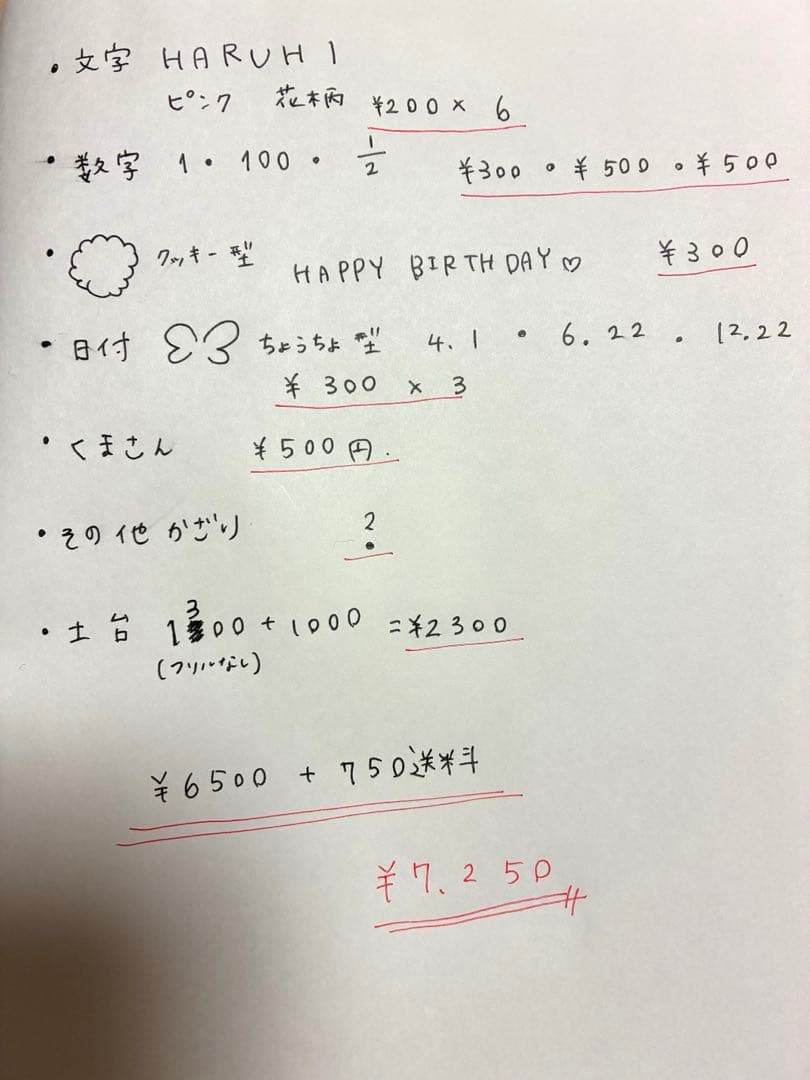 ・文字 HARUHI
ピンク 花柄 ¥200 × 6
・数字 1・100・1/2 ¥300・¥500・¥500
・クッキー型 HAPPY BIRTHDAY♡ ¥300
・日付 ちょうちょ型 4.1・6.22.12.22
¥300 × 3
・くまさん ¥500円.
・その他かざり 2
・土台 1300+1000 =¥2300
(フリルなし)
¥6500 + 750送料
¥7.250